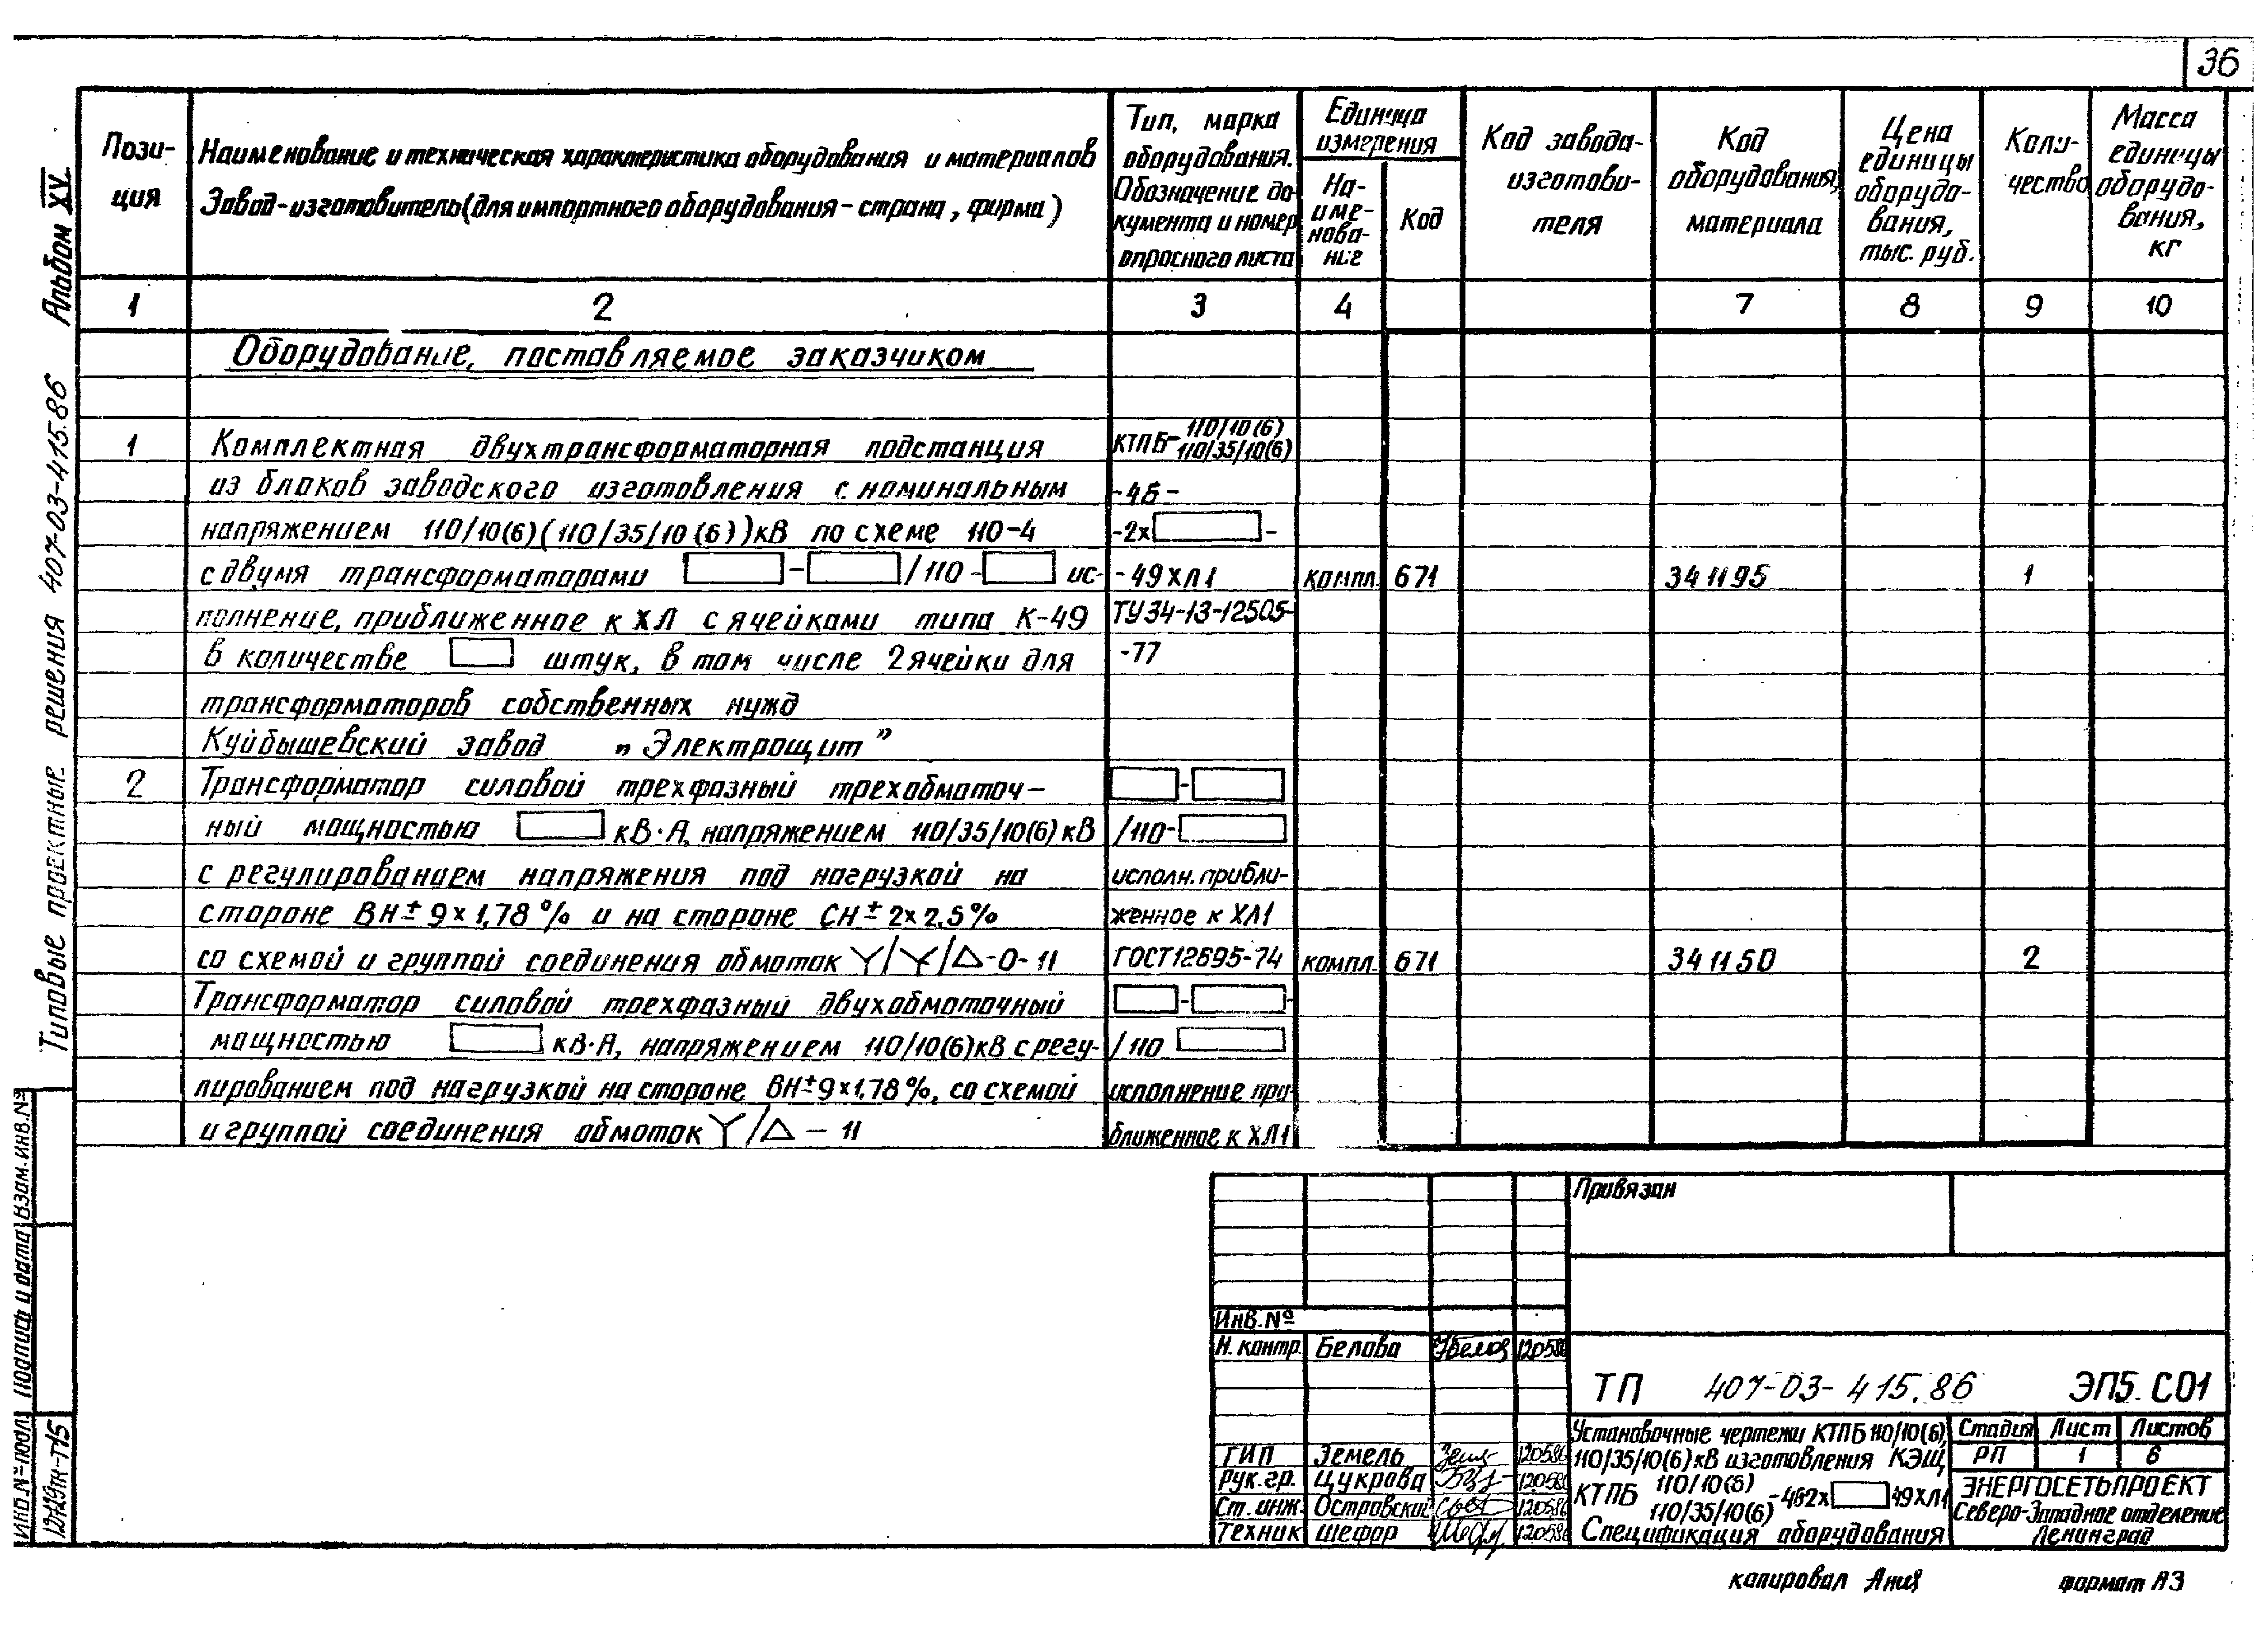 36
Альбом XV
Типовые проектные решения 407-03-415.86
Пози-
ция
Наименование и техническая характеристика оборудования и материалов
Завод-изготовитель (для импортного оборудования - страна, фирма)
Тип, марка
оборудования.
Обозначение до-
кумента и номер
опросного листа
Единица
измерения
На-
име-
нова-
ние
Код
Код завода-
изготови-
теля
Код
оборудования,
материала
Цена
единицы
оборудо-
вания,
тыс. руб.
Коли-
чество
Масса
единицы
оборудо-
вания,
кг
1 2 3 4 7 8 9 10
Оборудование, поставляемое заказчиком
1 Комплектная двухтрансформаторная подстанция КТПБ- 110/10(6) 110/35/10(6)
из блоков заводского изготовления с номинальным -4Б-
напряжением 110/10(6)(110/35/10(6))кВ по схеме 110-4 -2х -
с двумя трансформаторами - /110- ис- -49ХЛ1 компл. 671 341195 1
полнение, приближенное к ХЛ с ячейками типа К-49 ТУ34-13-12505-
в количестве штук, в том числе 2 ячейки для -77
трансформаторов собственных нужд
Куйбышевский завод „Электрощит”
2 Трансформатор силовой трехфазный трехобмоточ- -
ный мощностью кВ·А, напряжением 110/35/10(6)кВ /110-
с регулированием напряжения под нагрузкой на исполн. прибли-
стороне ВН±9×1,78% и на стороне СН±2×2,5% женное к ХЛ1
со схемой и группой соединения обмоток Y/Y/Δ-0-11 ГОСТ12695-74 компл. 671 341150 2
Трансформатор силовой трехфазный двухобмоточный - -
мощностью кВ·А, напряжением 110/10(6)кВ с регу- /110
лированием под нагрузкой на стороне ВН±9×1,78%, со схемой исполнение при-
и группой соединения обмоток Y/Δ – 11 ближенное к ХЛ1
Взам. инв. №
Подпись и дата
Инв. № подл.
12729тм-т15
Привязан
Инв. №
Н. контр. Белова 120586
ТП 407-03-415.86 ЭП5.С01
ГИП Земель 120586
Рук. гр. Цукрова 120586
Ст. инж. Островский 120586
Техник Шефор 120586
Установочные чертежи КТПБ 110/10(6),
110/35/10(6)кВ изготовления КЭЩ
КТПБ 110/10(6) 110/35/10(6) -4б2х 49ХЛ1
Спецификация оборудования
Стадия Лист Листов
РП 1 6
ЭНЕРГОСЕТЬПРОЕКТ
Северо-Западное отделение
Ленинград
копировал Формат А3